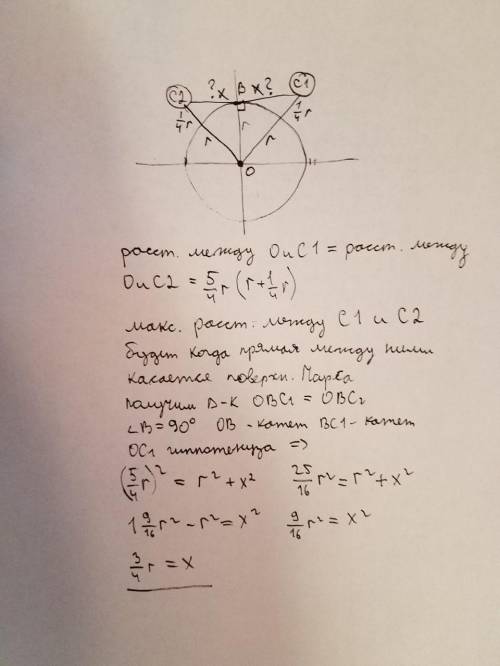 ? x B x ?
C2 C1
1/4 r r r r 1/4 r
O
расст. между O и C1 = расст. между
O и C2 = 5/4 r (r + 1/4 r)
макс. расст. между C1 и C2
будет когда прямая между ними
касается поверхн. Марса
получим Δ-к OBC1 = OBC2
∠B = 90° OB - катет BC1 - катет
OC1 гиппотенуза =>
(5/4 r)² = r² + x² 25/16 r² = r² + x²
1 9/16 r² - r² = x² 9/16 r² = x²
3/4 r = x